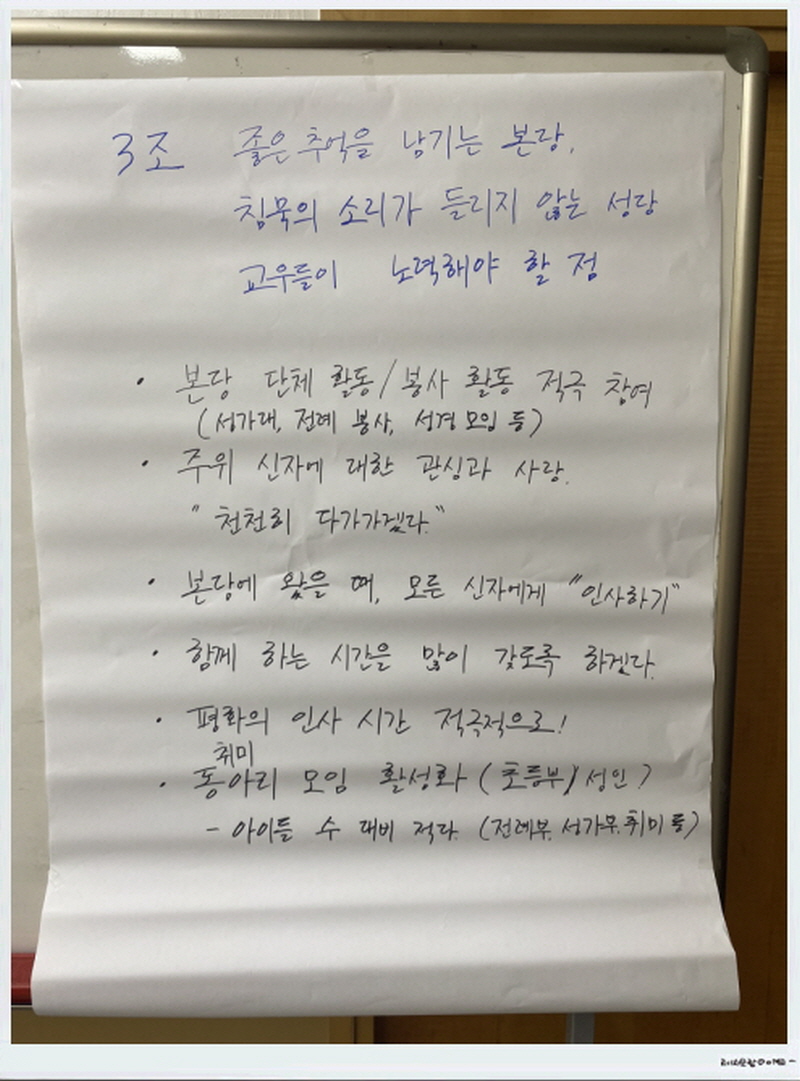 3조 좋은 추억을 남기는 본당.
침묵의 소리가 들리지 않는 성당
교우들이 노력해야 할 점
· 본당 단체 활동/봉사 활동 적극 참여
(성가대, 전례 봉사, 성경 모임 등)
· 주위 신자에 대한 관심과 사랑.
"천천히 다가가겠다."
· 본당에 왔을 때, 모든 신자에게 "인사하기"
· 함께 하는 시간을 많이 갖도록 하겠다.
· 평화의 인사 시간 적극적으로!
취미
· 동아리 모임 활성화 (초등부/성인)
- 아이들 수 대비 적다. (전례부, 성가부, 취미 등)